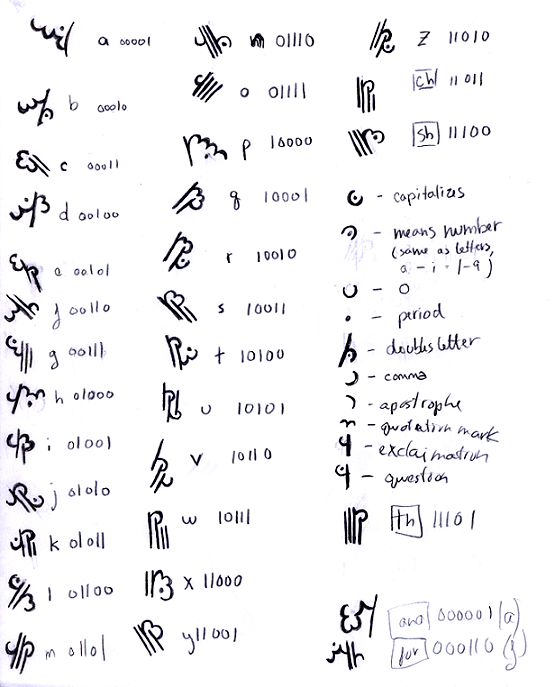 a 00001
b 00010
c 00011
d 00100
e 00101
f 00110
g 00111
h 01000
i 01001
j 01010
k 01011
l 01100
m 01101
n 01110
o 01111
p 10000
q 10001
r 10010
s 10011
t 10100
u 10101
v 10110
w 10111
x 11000
y 11001
z 11010
ch 11011
sh 11100
- capitalizes
- means number
(same as letters,
a - i = 1-9)
- 0
- period
- double letter
- comma
- apostrophe
- quotation mark
- exclamation
- question
th 11101
and 000001 (a)
for 000110 (f)